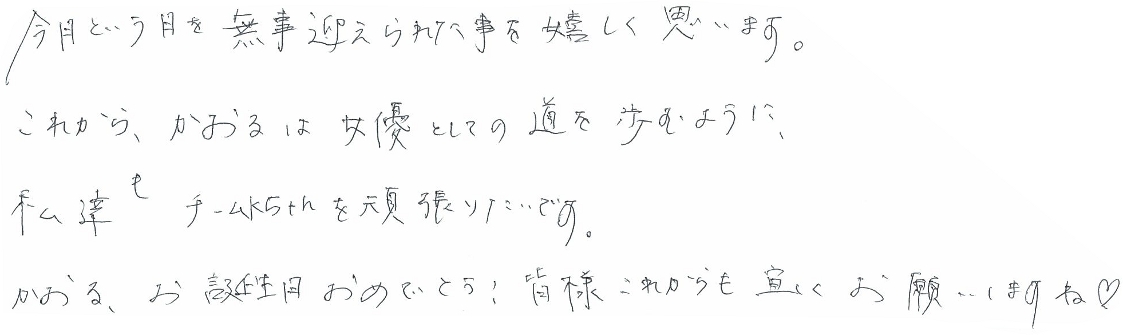 今日という日を無事迎えられた事を嬉しく思います。
これから、かおるは女優としての道を歩むように、
私達も チームK5thを頑張りたいです。
かおる、お誕生日おめでとう！皆様これからも宜しくお願いしますね♡